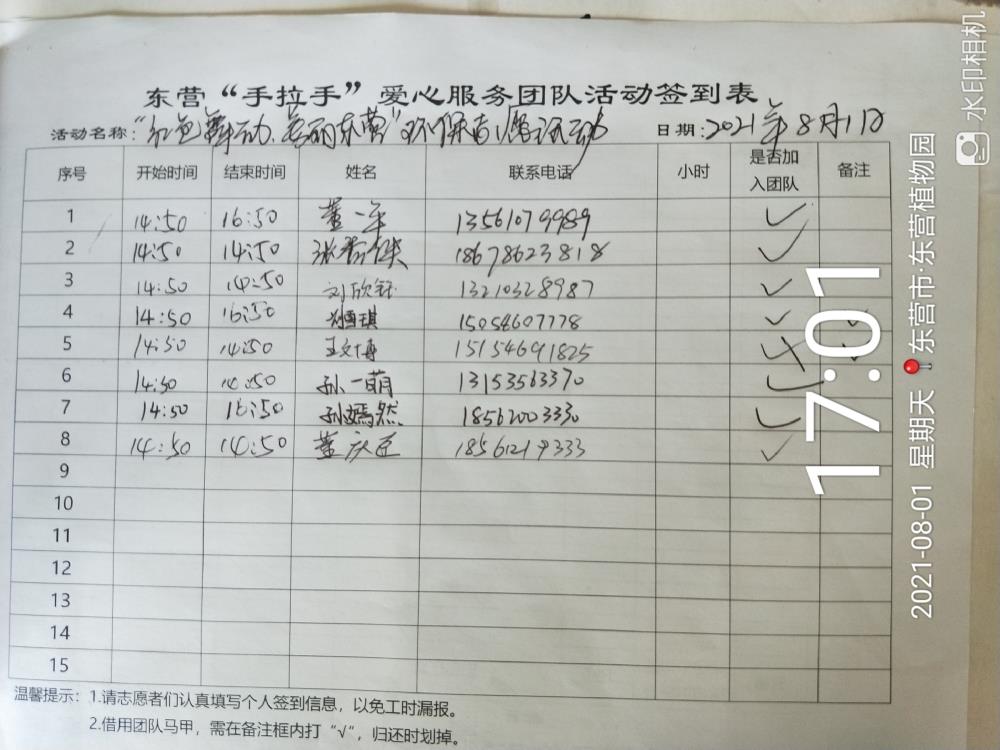 东营“手拉手”爱心服务团队活动签到表
活动名称：“红色舞动、美丽东营”环保志愿活动 日期：2021年8月1日
序号 开始时间 结束时间 姓名 联系电话 小时 是否加入团队 备注
1 14:50 16:50 董一平 13561079989 ✓
2 14:50 14:50 18678623818 ✓
3 14:50 14:50 刘欣钰 13210328987 ✓
4 14:50 16:50 15054607778 ✓
5 14:50 14:50 王文博 15154691825
6 14:50 14:50 孙一萌 13153563370 ✓
7 14:50 16:50 孙嫣然 18562003330 ✓
8 14:50 14:50 董庆 18561219333 ✓
9
10
11
12
13
14
15
温馨提示：1.请志愿者们认真填写个人签到信息，以免工时漏报。
2.借用团队马甲，需在备注框内打“√”，归还时划掉。
17:01
2021-08-01 星期天 东营市·东营植物园
水印相机